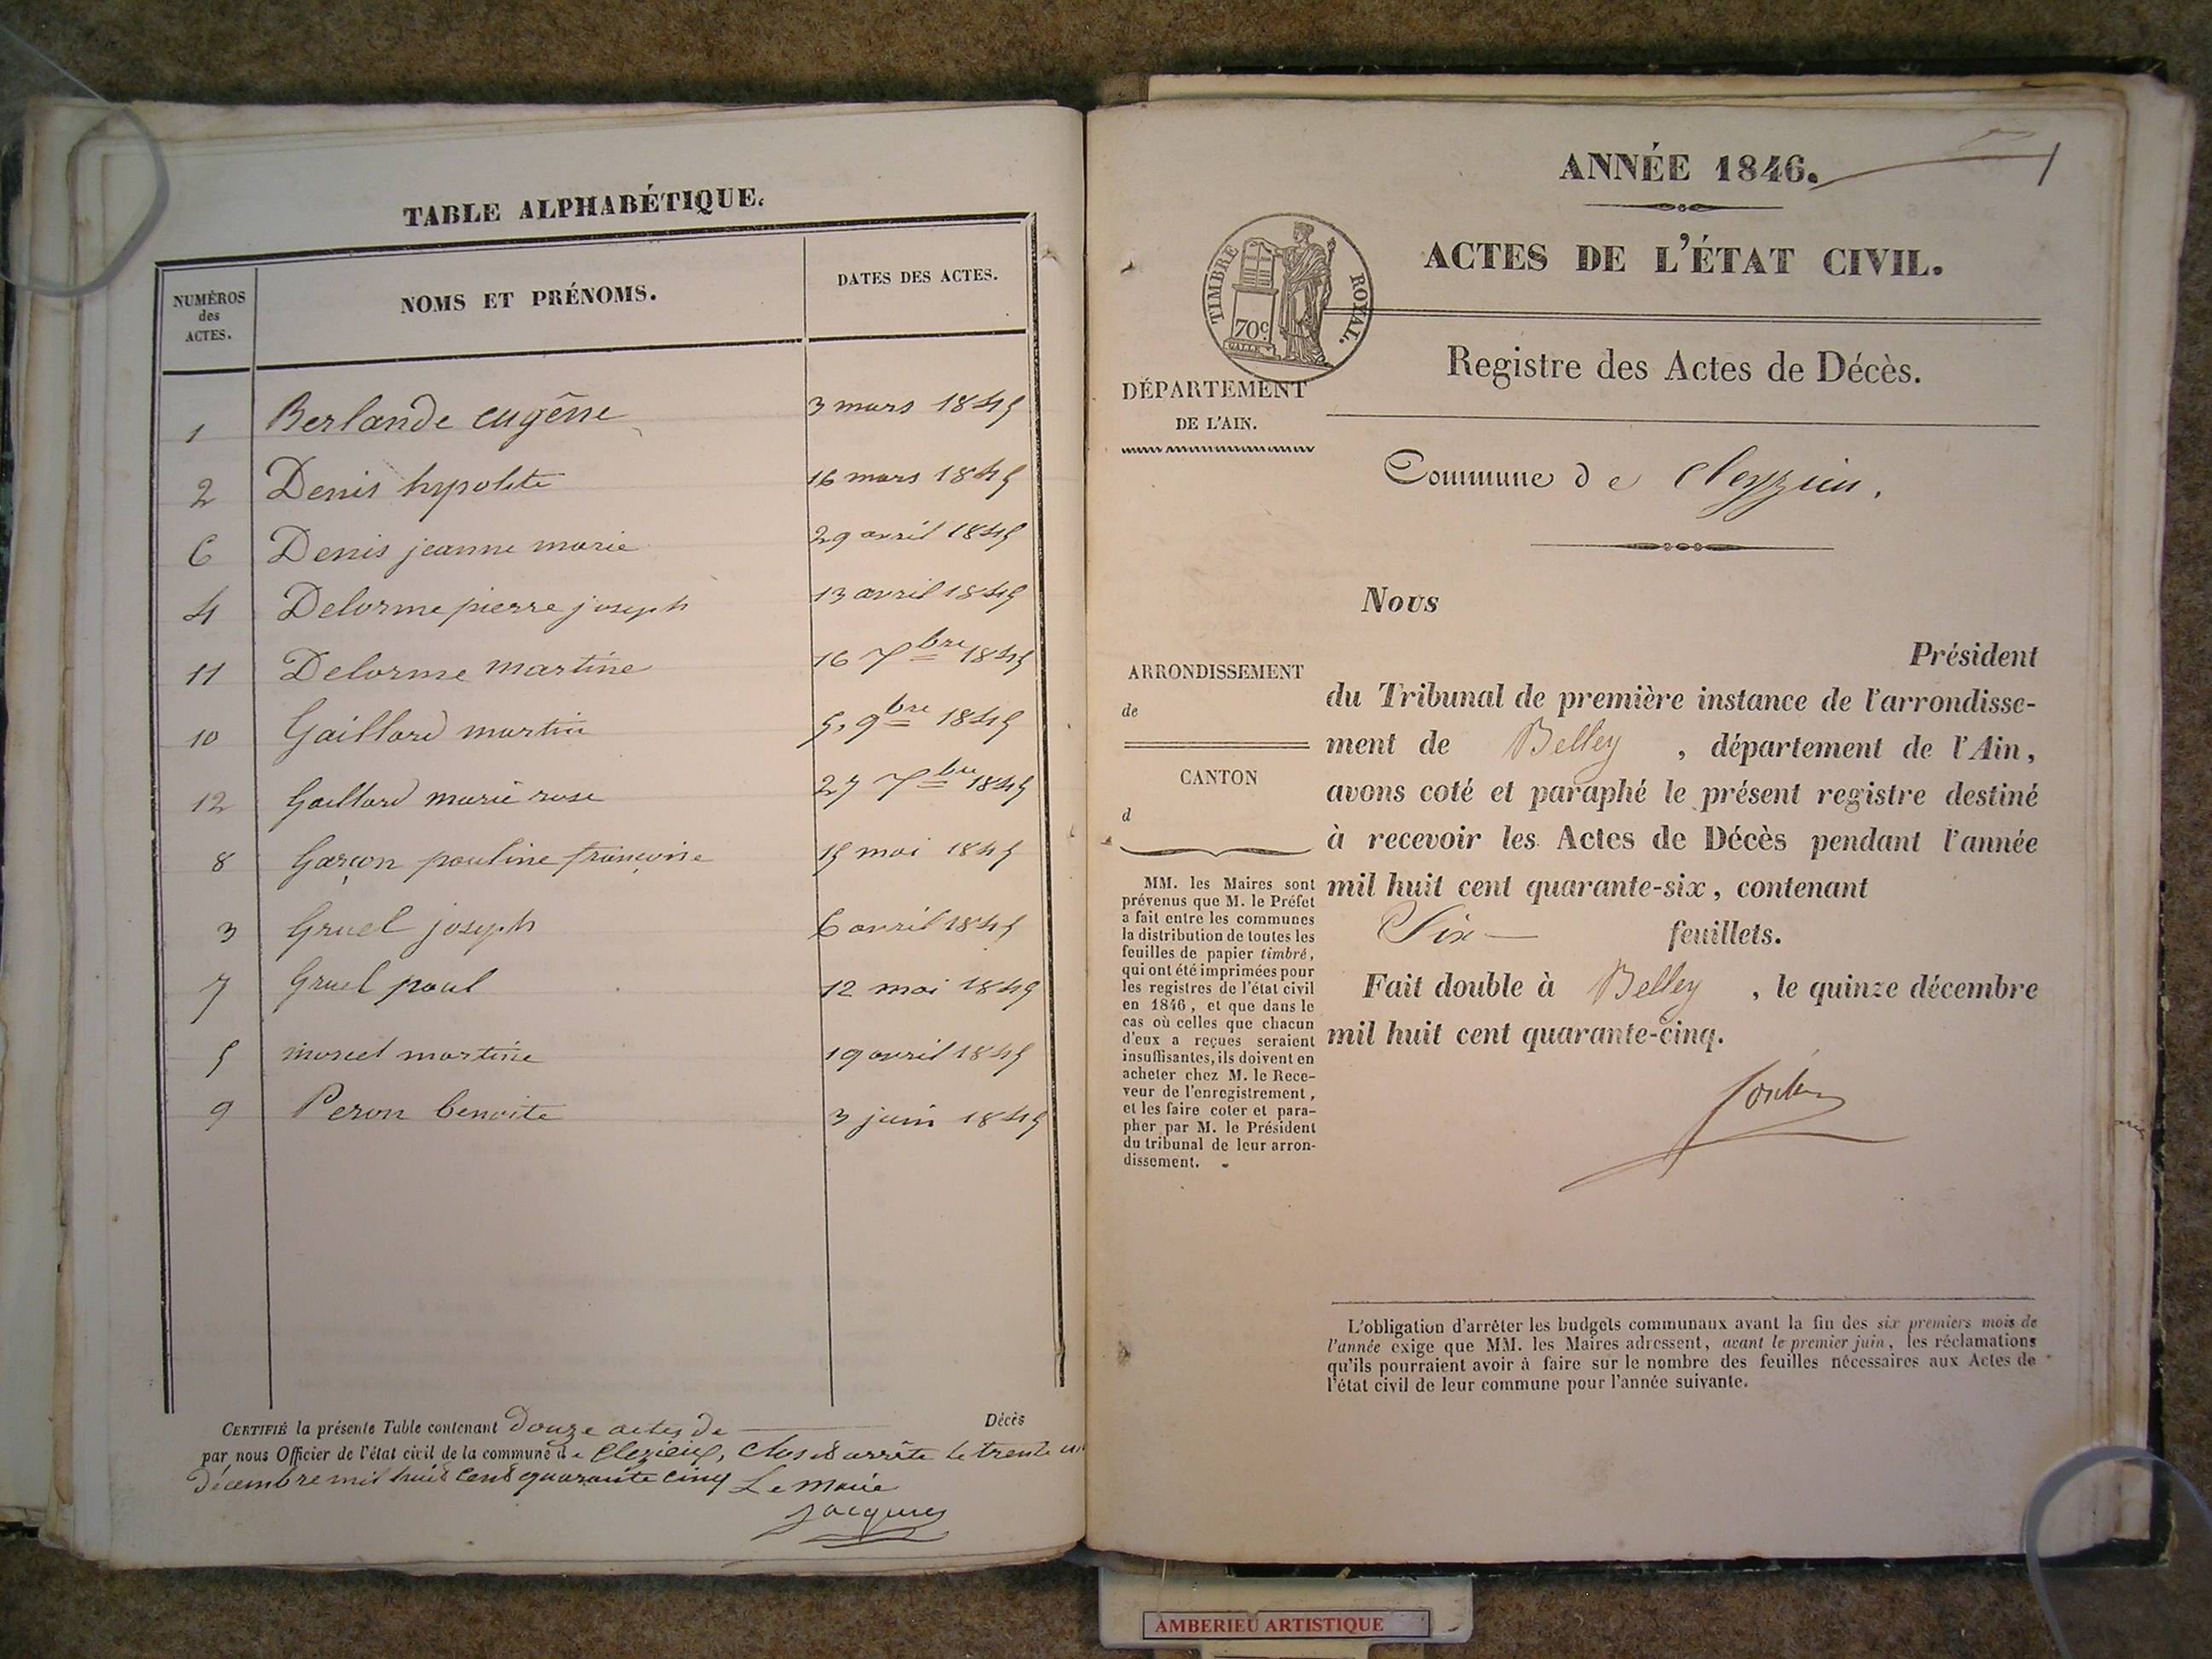 TABLE ALPHABÉTIQUE.
NUMÉROS des ACTES. NOMS ET PRÉNOMS. DATES DES ACTES.
1 Berlande eugêne 3 mars 1845
2 Denis hypolite 16 mars 1845
6 Denis jeanne marie 29 avril 1845
4 Delorme pierre joseph 13 avril 1845
11 Delorme martine 16 7bre 1845
10 Gaillard martin 5, 9bre 1845
12 Gaillard marie rose 27 7bre 1845
8 Garçon pauline françoise 15 mai 1845
3 Gruel joseph 6 avril 1845
7 Gruel paul 12 mai 1845
5 morel martine 19 avril 1845
9 Peron benoite 3 juin 1845
CERTIFIÉ la présente Table contenant douze actes de Décès
par nous Officier de l'état civil de la commune de Clezieu, Clos et arrête le trente un
décembre mil huit cent quarante cinq Le Maire
Jacques
1
ANNÉE 1846.
ACTES DE L'ÉTAT CIVIL.
TIMBRE ROYAL.
70c
GALLE
Registre des Actes de Décès.
DÉPARTEMENT
DE L'AIN.
Commune de Cleyzieu.
Nous
Président
du Tribunal de première instance de l'arrondisse-
ment de Belley, département de l'Ain,
avons coté et paraphé le présent registre destiné
à recevoir les Actes de Décès pendant l'année
mil huit cent quarante-six, contenant
Six feuillets.
Fait double à Belley, le quinze décembre
mil huit cent quarante-cinq.
ARRONDISSEMENT
de
CANTON
d
MM. les Maires sont
prévenus que M. le Préfet
a fait entre les communes
la distribution de toutes les
feuilles de papier timbré,
qui ont été imprimées pour
les registres de l'état civil
en 1846, et que dans le
cas où celles que chacun
d'eux a reçues seraient
insuffisantes, ils doivent en
acheter chez M. le Rece-
veur de l'enregistrement,
et les faire coter et para-
pher par M. le Président
du tribunal de leur arron-
dissement.
L'obligation d'arrêter les budgets communaux avant la fin des six premiers mois de
l'année exige que MM. les Maires adressent, avant le premier juin, les réclamations
qu'ils pourraient avoir à faire sur le nombre des feuilles nécessaires aux Actes de
l'état civil de leur commune pour l'année suivante.
AMBERIEU ARTISTIQUE